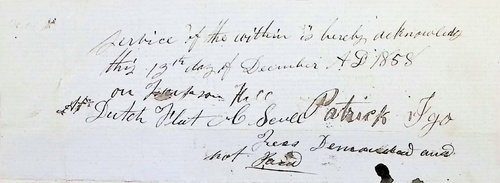 Service of the within is hereby acknowledg
this 13th day of December AD 1858
on Jackson Hill
Dutch Flat Patrick Igo
Fees Demanded and
not Paid